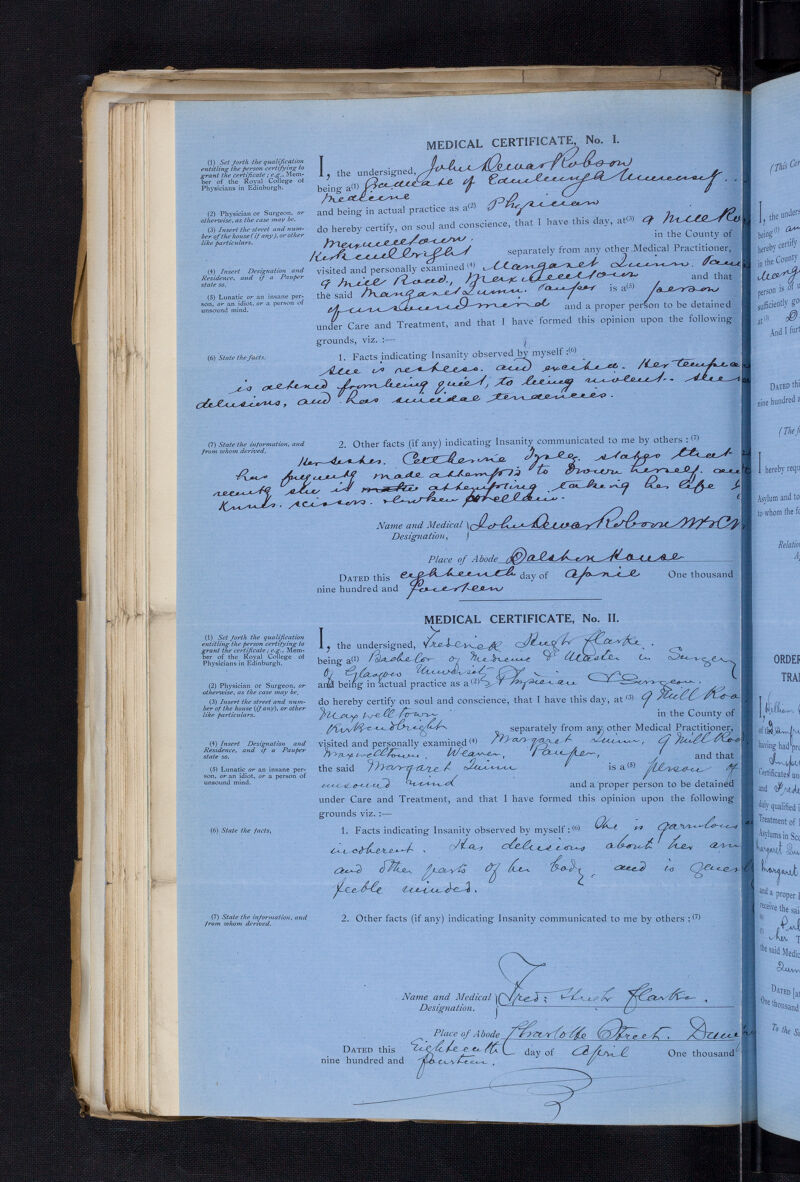 MEDICAL CERTIFICATE, No. I.
(1) Set forth the qualification
entitling the person certifying to
grant the certificate; e.g., Mem-
ber of the Royal College of
Physicians in Edinburgh.
I, the undersigned, John Dewar Robson
being a(1) Graduate of Edinburgh University
Medicine
(2) Physician or Surgeon, or
otherwise, as the case may be.
and being in actual practice as a(2) Physician
(3) Insert the street and num-
ber of the house (if any), or other
like particulars.
do hereby certify, on soul and conscience, that I have this day, at(3) 9 Mill
Maxwelltown in the County of
Kirkcudbright separately from any other Medical Practitioner,
(4) Insert Designation and
Residence, and if a Pauper
state so.
visited and personally examined(4) Margaret Quinn.
9 Mill Road, Maxwelltown and that
(5) Lunatic or an insane per-
son, or an idiot, or a person of
unsound mind.
the said Margaret Quinn. Pauper is a(5) person
of unsound mind and a proper person to be detained
under Care and Treatment, and that I have formed this opinion upon the following
grounds, viz. :—
(6) State the facts.
1. Facts indicating Insanity observed by myself :(6)
She is restless. and excited. Her
is altered from being quiet, to being violent. She
delusions, and has suicidal tendencies.
(7) State the information, and
from whom derived.
2. Other facts (if any) indicating Insanity communicated to me by others :(7)
Her Sister. Catherine states that
has frequently made attempts to Drown herself. and
recently she is attempting taking her life
Knives. scissors.
Name and Medical
Designation,
John Dewar Robson
Place of Abode Dalston House
DATED this eighteenth day of April One thousand
nine hundred and fourteen
MEDICAL CERTIFICATE, No. II.
(1) Set forth the qualification
entitling the person certifying to
grant the certificate; e.g., Mem-
ber of the Royal College of
Physicians in Edinburgh.
I, the undersigned, Frederick Hugh Clarke.
being a(1) Bachelor of Medicine & Master in Surgery
of Glasgow University
(2) Physician or Surgeon, or
otherwise, as the case may be.
and being in actual practice as a(2) Physician & Surgeon.
(3) Insert the street and num-
ber of the house (if any), or other
like particulars.
do hereby certify on soul and conscience, that I have this day, at(3) 9 Mill
Maxwelltown in the County of
Kirkcudbright separately from any other Medical Practitioner,
(4) Insert Designation and
Residence, and if a Pauper
state so.
visited and personally examined(4) Margaret Quinn, 9 Mill
Maxwelltown. Weaver, Pauper, and that
(5) Lunatic or an insane per-
son, or an idiot, or a person of
unsound mind.
the said Margaret Quinn is a(5) person of
unsound mind and a proper person to be detained
under Care and Treatment, and that I have formed this opinion upon the following
grounds viz. :—
(6) State the facts,
1. Facts indicating Insanity observed by myself :(6) She is garrulous
incoherent. Has delusions about her
and other parts of her body, and is
feeble minded.
(7) State the information, and
from whom derived.
2. Other facts (if any) indicating Insanity communicated to me by others ;(7)
Name and Medical
Designation.
Fred: Hugh Clarke.
Place of Abode Charlotte Street.
DATED this Eighteenth day of April One thousand
nine hundred and fourteen.